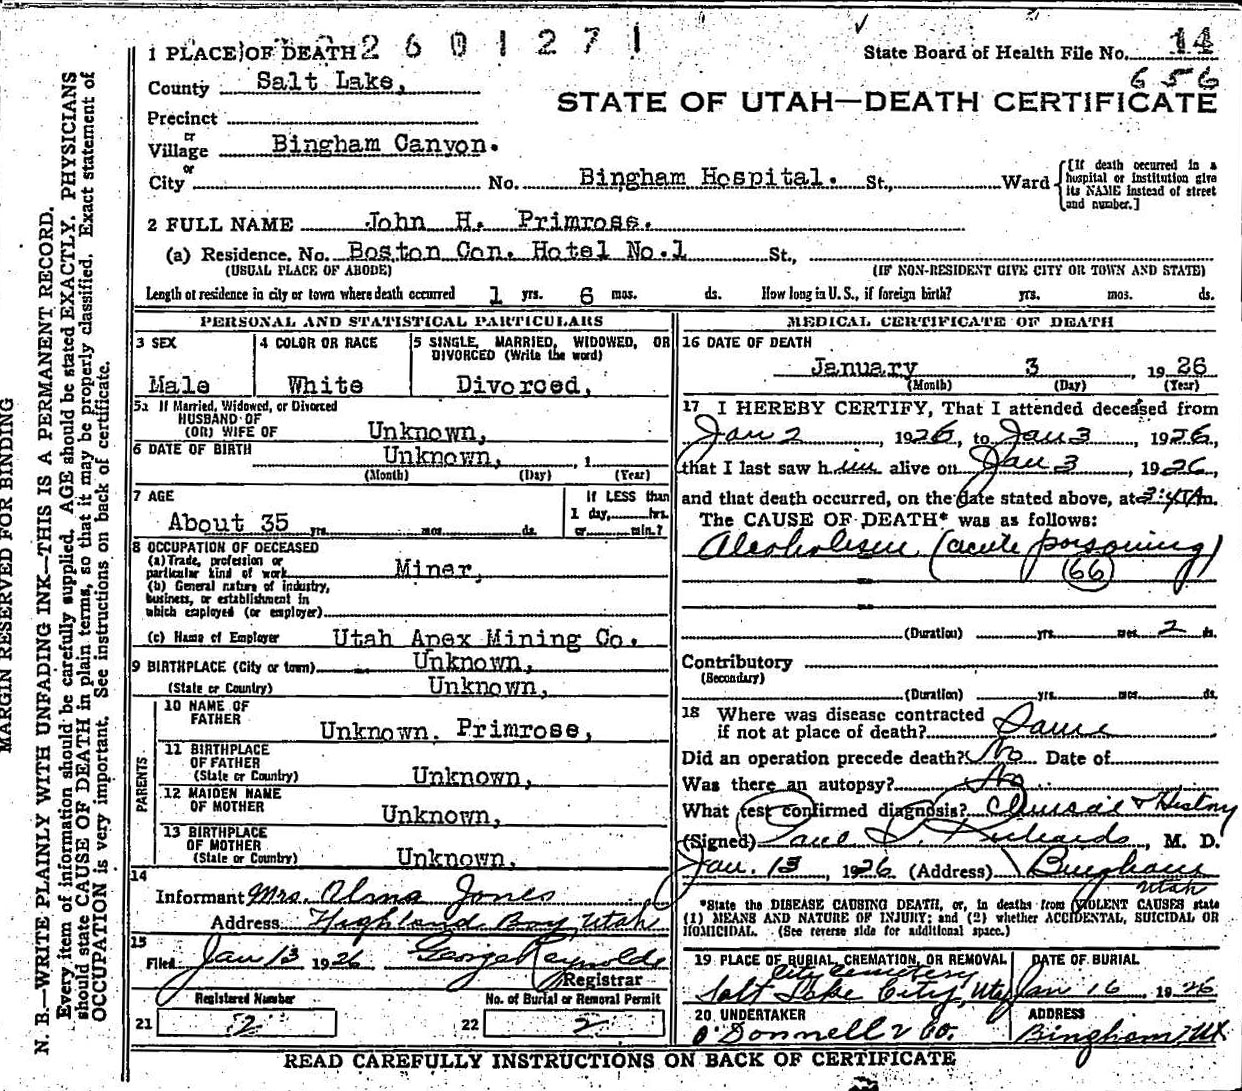 1 PLACE OF DEATH 2601271
State Board of Health File No. 14
656
County Salt Lake,
STATE OF UTAH—DEATH CERTIFICATE
Precinct
or
Village Bingham Canyon.
or
City No. Bingham Hospital. St., Ward
[If death occurred in a
hospital or institution give
its NAME instead of street
and number.]
2 FULL NAME John H. Primrose.
(a) Residence. No. Boston Con. Hotel No.1 St.,
(USUAL PLACE OF ABODE) (IF NON-RESIDENT GIVE CITY OR TOWN AND STATE)
Length of residence in city or town where death occurred 1 yrs. 6 mos. ds. How long in U. S., if foreign birth? yrs. mos. ds.
PERSONAL AND STATISTICAL PARTICULARS
3 SEX
Male
4 COLOR OR RACE
White
5 SINGLE, MARRIED, WIDOWED, OR
DIVORCED (Write the word)
Divorced,
5a If Married, Widowed, or Divorced
HUSBAND OF
(OR) WIFE OF Unknown,
6 DATE OF BIRTH Unknown, , 1
(Month) (Day) (Year)
7 AGE
About 35 yrs. mos. ds.
If LESS than
1 day, hrs.
or min.?
8 OCCUPATION OF DECEASED
(a) Trade, profession or
particular kind of work Miner,
(b) General nature of industry,
business, or establishment in
which employed (or employer)
(c) Name of Employer Utah Apex Mining Co.
9 BIRTHPLACE (City or town) Unknown,
(State or Country) Unknown,
PARENTS
10 NAME OF
FATHER Unknown. Primrose,
11 BIRTHPLACE
OF FATHER
(State or Country) Unknown,
12 MAIDEN NAME
OF MOTHER Unknown,
13 BIRTHPLACE
OF MOTHER
(State or Country) Unknown,
14
Informant Mrs. Alma Jones
Address Highland Boy Utah
15
Filed Jan 13 1926 George Reynolds
Registrar
Registered Number No. of Burial or Removal Permit
21 2 22 2
MEDICAL CERTIFICATE OF DEATH
16 DATE OF DEATH
January 3 , 1926
(Month) (Day) (Year)
17 I HEREBY CERTIFY, That I attended deceased from
Jan 2 , 1926, to Jan 3 , 1926,
that I last saw him alive on Jan 3 , 1926,
and that death occurred, on the date stated above, at 3:45Am.
The CAUSE OF DEATH* was as follows:
Alcoholism (acute poisoning)
66
(Duration) yrs. mos. 2 ds.
Contributory
(Secondary)
(Duration) yrs. mos. ds.
18 Where was disease contracted
if not at place of death? Same
Did an operation precede death? No Date of
Was there an autopsy? No
What test confirmed diagnosis? Clinical & History
(Signed) Paul S. Richards, M. D.
Jan. 13 , 1926 (Address) Bingham
Utah
*State the DISEASE CAUSING DEATH, or, in deaths from VIOLENT CAUSES state
(1) MEANS AND NATURE OF INJURY; and (2) whether ACCIDENTAL, SUICIDAL OR
HOMICIDAL. (See reverse side for additional space.)
19 PLACE OF BURIAL, CREMATION, OR REMOVAL
City Cemetery
Salt Lake City, Utah
DATE OF BURIAL
Jan 16 1926
20 UNDERTAKER
O'Donnell & Co.
ADDRESS
Bingham, Ut
READ CAREFULLY INSTRUCTIONS ON BACK OF CERTIFICATE
MARGIN RESERVED FOR BINDING
N. B.—WRITE PLAINLY WITH UNFADING INK—THIS IS A PERMANENT RECORD.
Every item of information should be carefully supplied. AGE should be stated EXACTLY. PHYSICIANS
should state CAUSE OF DEATH in plain terms, so that it may be properly classified. Exact statement of
OCCUPATION is very important. See instructions on back of certificate.